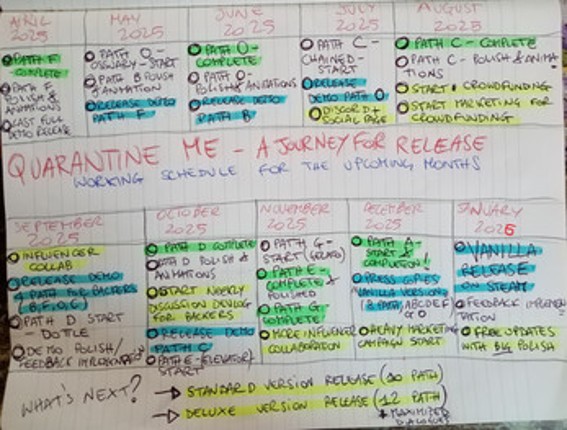 APRIL 2025
PATH F COMPLETE
PATH F POLISH & ANIMATIONS
LAST FULL DEMO RELEASE
MAY 2025
PATH O - OSSUARY - START
PATH B POLISH / ANIMATION
RELEASE DEMO PATH F
JUNE 2025
PATH O - COMPLETE
PATH O - POLISH & ANIMATIONS
RELEASE DEMO PATH B
JULY 2025
PATH C - CHAINED - START
RELEASE DEMO PATH O
DISCORD + SOCIAL PAGE
AUGUST 2025
PATH C - COMPLETE
PATH C - POLISH & ANIMATIONS
START CROWDFUNDING
START MARKETING FOR CROWDFUNDING
QUARANTINE ME - A JOURNEY FOR RELEASE
WORKING SCHEDULE FOR THE UPCOMING MONTHS
SEPTEMBER 2025
INFLUENCER COLLAB
RELEASE DEMO
4 PATH FOR BACKERS
(B, F, O, C)
PATH D START
- DOTTLE
DEMO POLISH / FEEDBACK
OCTOBER 2025
PATH D COMPLETE
PATH D POLISH & ANIMATIONS
START WEEKLY
DISCUSSION DEVLOG
FOR BACKERS
RELEASE DEMO
PATH C
PATH E - (ELEVATOR) START
NOVEMBER 2025
PATH G - START (GELATO)
PATH E - COMPLETE & POLISHED
PATH G COMPLETE
MORE INFLUENCER COLLABORATION
DECEMBER 2025
PATH A - START & COMPLETION!
PRESS COPIES
VANILLA VERSION
(8 PATH) ABCDEF
G O
HEAVY MARKETING CAMPAIGN START
JANUARY 2026
VANILLA RELEASE ON STEAM
FEEDBACK IMPLEMENTATION
FREE UPDATES WITH BIG POLISH
WHAT'S NEXT?
→ STANDARD VERSION RELEASE (10 PATH)
→ DELUXE VERSION RELEASE (12 PATH)
+ MAXIMIZED DIALOGUES